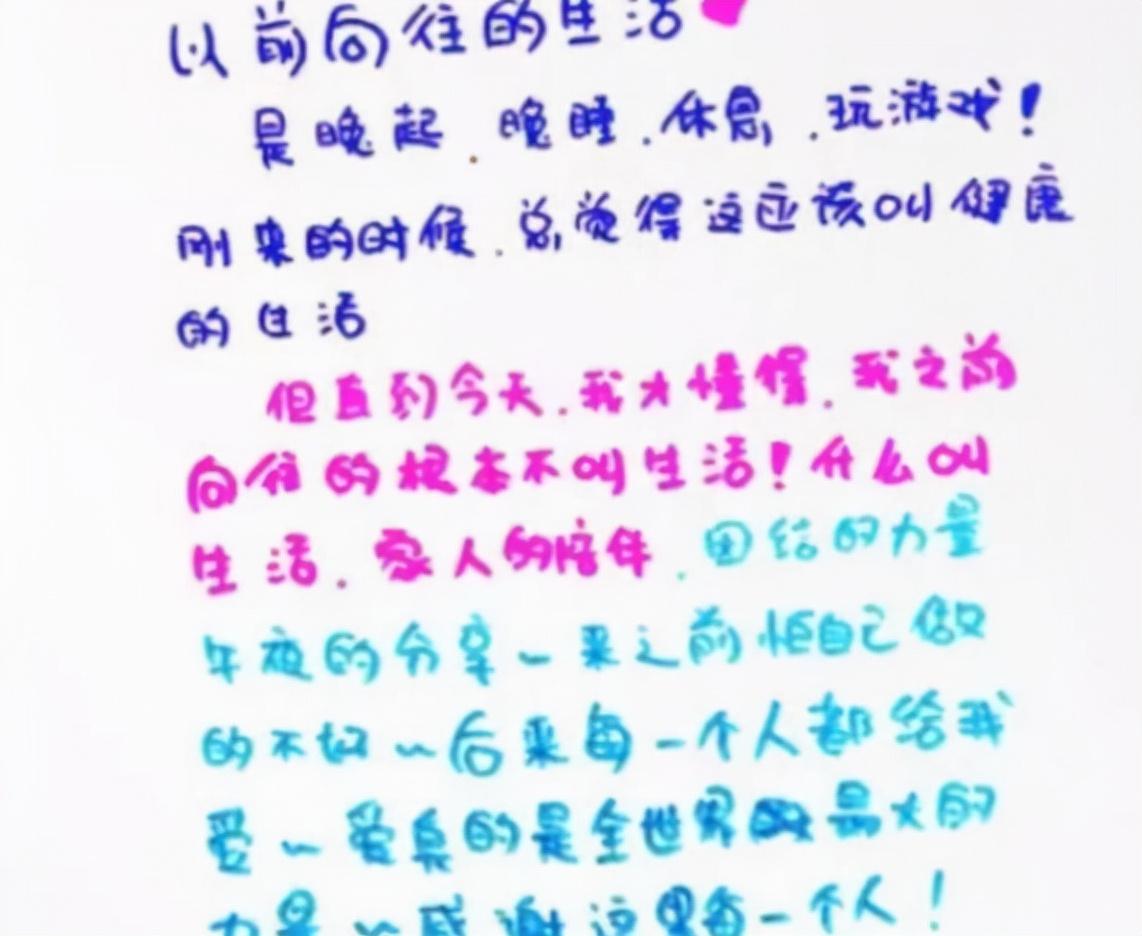 以前向往的生活
是晚起.晚睡.休息.玩游戏!
刚来的时候.总觉得这应该叫健康
的生活
但直到今天.我才懂得.我之前
向往的根本不叫生活!什么叫
生活.家人的陪伴.团结的力量
午夜的分享~来之前怕自己做
的不好~后来每一个人都给我
爱~爱真的是全世界最大的
力量~感谢这里每一个人!